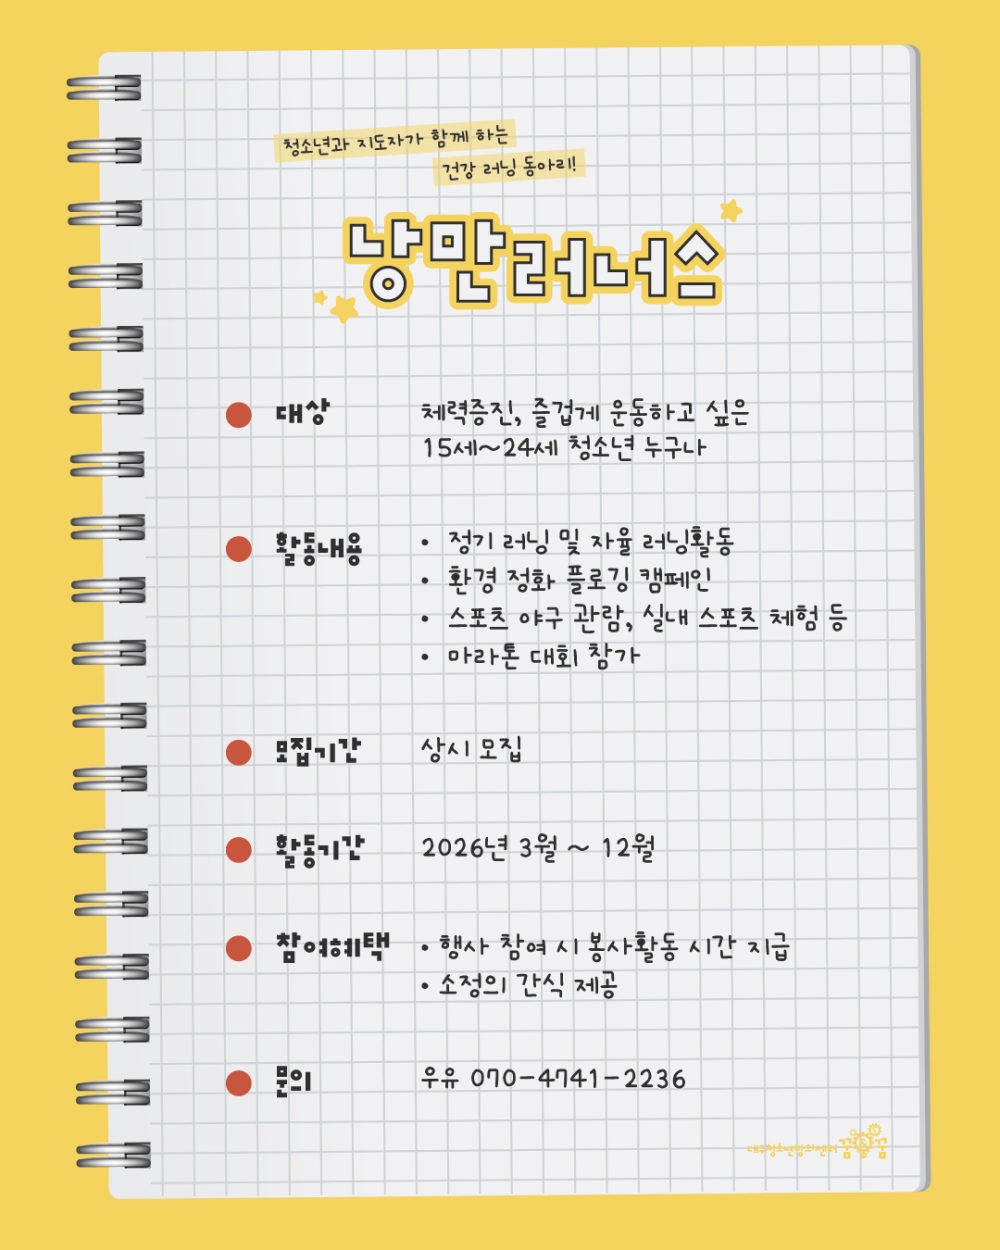 청소년과 지도자가 함께 하는
건강 러닝 동아리!
낭만러너스
대상 체력증진, 즐겁게 운동하고 싶은
15세~24세 청소년 누구나
활동내용 • 정기 러닝 및 자율 러닝활동
• 환경 정화 플로깅 캠페인
• 스포츠 야구 관람, 실내 스포츠 체험 등
• 마라톤 대회 참가
모집기간 상시 모집
활동기간 2026년 3월 ~ 12월
참여혜택 • 행사 참여 시 봉사활동 시간 지급
• 소정의 간식 제공
문의 우유 070-4741-2236